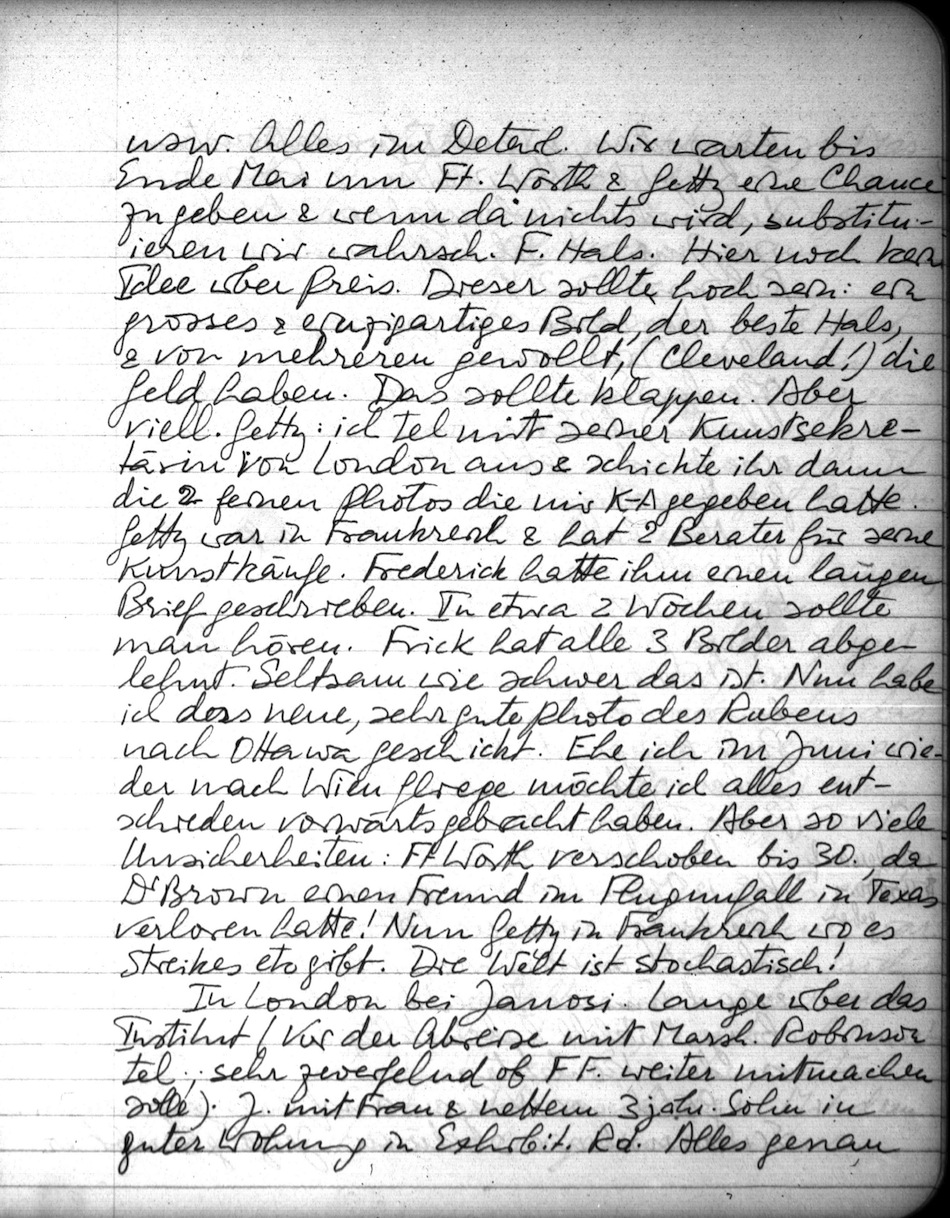 usw. Alles im Detail. Wir warten bis
Ende Mai um Ft. Worth & Getty eine Chance
zu geben & wenn da nichts wird, substitu-
ieren wir wahrsch. F. Hals. Hier noch kein
Idee über Preis. Dieser sollte hoch sein: ein
grosses & einzigartiges Bild, der beste Hals,
& von mehreren gewollt, (Cleveland!) die
Geld haben. Das sollte klappen. Aber
viell. Getty: ich tel mit seiner Kunstsekre-
tärin von London aus & schickte ihr dann
die 2 feinen Photos die mir K-A gegeben hatte.
Getty war in Frankreich & hat 2 Berater für seine
Kunstkäufe. Frederick hatte ihm einen langen
Brief geschrieben. In etwa 2 Wochen sollte
man hören. Frick hat alle 3 Bilder abge-
lehnt. Seltsam wie schwer das ist. Nun habe
ich das neue, sehr gute Photo des Rubens
nach Ottawa geschickt. Ehe ich im Juni wie-
der nach Wien fliege möchte ich alles ent-
schieden vorwärts gebracht haben. Aber so viele
Unsicherheiten: Ft Worth verschoben bis 30., da
Dr Brown einen Freund im Flugunfall in Texas
verloren hatte! Nun Getty in Frankreich wo es
Streikes etc gibt. Die Welt ist stochastisch!
In London bei Janosi. Lange über das
Institut (Vor der Abreise mit Marsh. Robinson
tel.; sehr zweifelnd ob F F. weiter mitmachen
solle). J. mit Frau & nettem 3 jähr. Sohn in
guter Wohnung in Exhibit. Rd. Alles genau